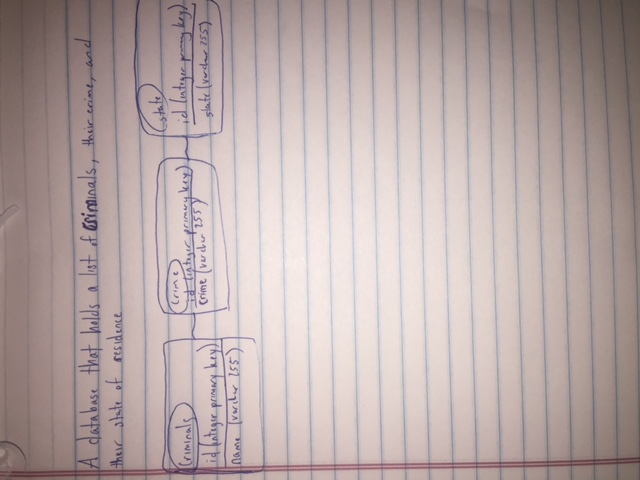 A database that holds a list of criminals, their crime, and
their state of residence
Criminals
id (integer primary key)
name (varchar 255)
Crime
id (integer primary key)
crime (varchar 255)
state
id (integer primary key)
state (varchar 255)